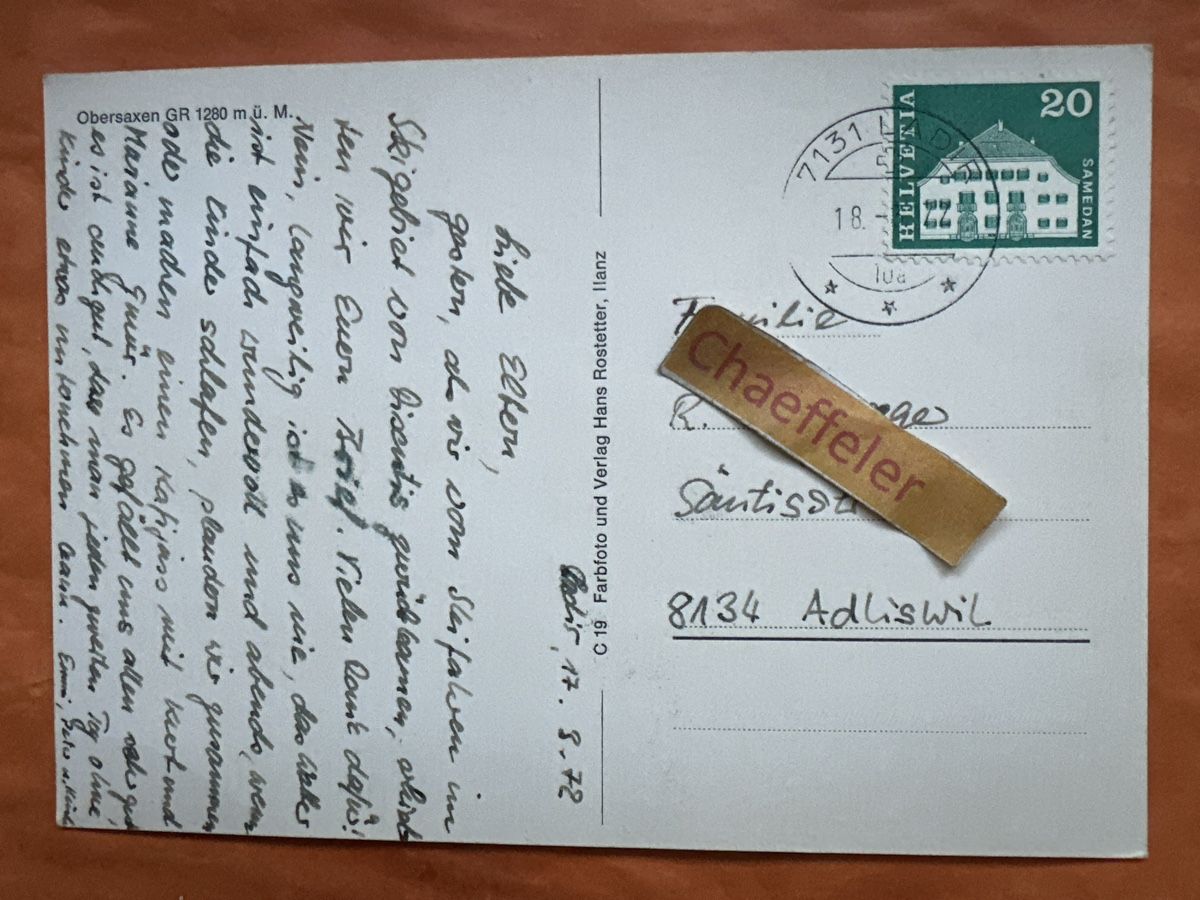 Obersaxen GR 1280 m ü. M.
Ladis, 17. 3. 72
Liebe Eltern,
gestern, als wir vom Skifahren im
Skigebiet von Disentis zurückkamen, erhiel-
ten wir Euren Brief. Vielen Dank dafür!
Nein, langweilig ist es uns nie, das Wetter
ist einfach wundervoll und abends, wenn
die Kinder schlafen, plaudern wir zusammen
oder machen einen Kafijass mit Kurt und
Marianne Gmür. Es gefällt uns allen sehr gut
es ist auch gut, dass man jeden zweiten Tag ohne
Kinder etwas unternehmen kann.
C 19 Farbfoto und Verlag Hans Rostetter, Ilanz
HELVETIA
20
SAMEDAN
7131 LADIR
18.
Familie
Chaeffeler
R.
8134 Adliswil